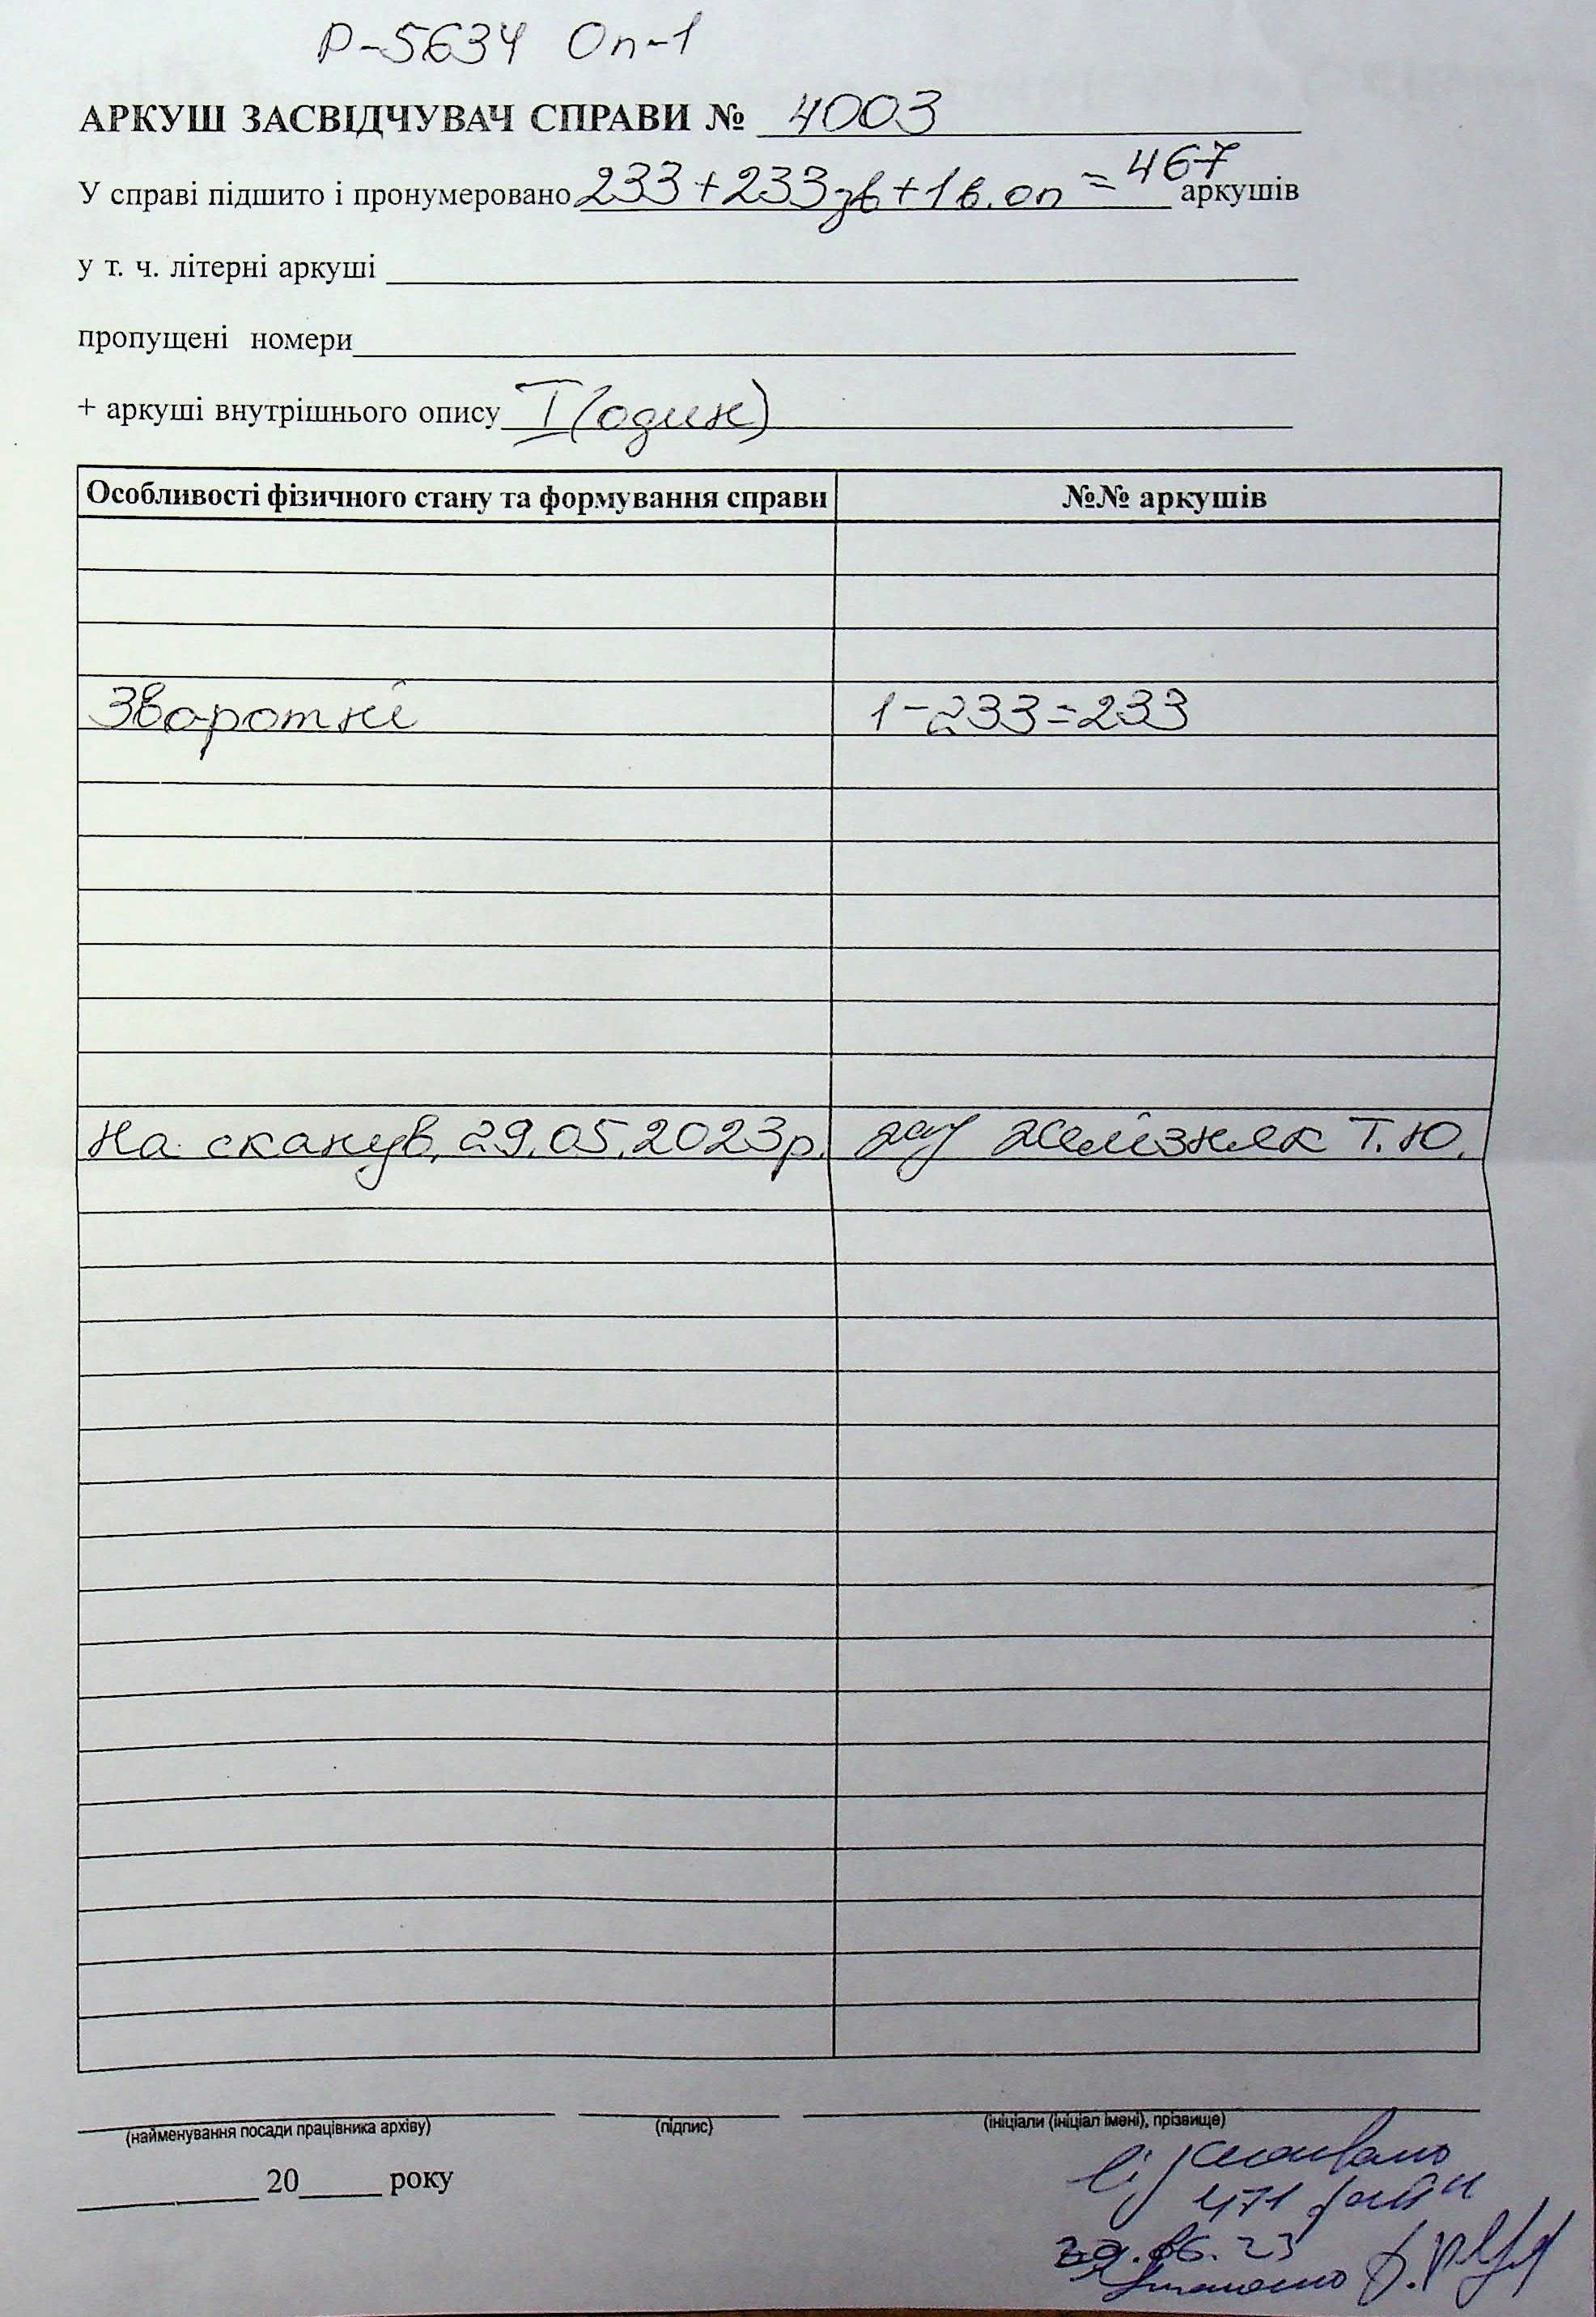 Р-5634 Оп-1
АРКУШ ЗАСВІДЧУВАЧ СПРАВИ № 4003
У справі підшито і пронумеровано 233+233зв+1в.оп=467 аркушів
у т. ч. літерні аркуші
пропущені номери
+ аркуші внутрішнього опису I(один)
Особливості фізичного стану та формування справи №№ аркушів
Зворотні 1-233=233
На сканув. 29.05.2023р. Желізняк Т.Ю.
(найменування посади працівника архіву) (підпис) (ініціали (ініціал імені), прізвище)
20 року року
Відскановано
471 файл
.06.23